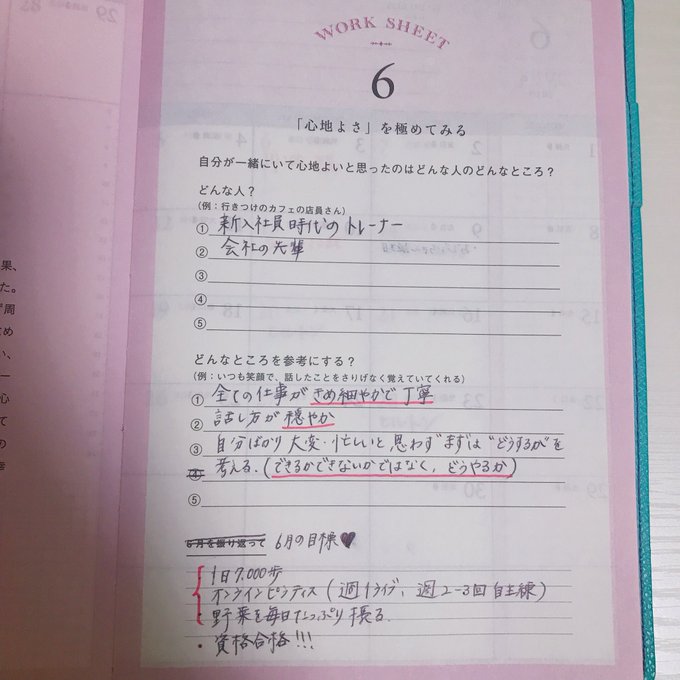 WORK SHEET
6
「心地よさ」を極めてみる
自分が一緒にいて心地よいと思ったのはどんな人のどんなところ？
どんな人？
(例：行きつけのカフェの店員さん)
① 新入社員時代のトレーナー
② 会社の先輩
③
④
⑤
どんなところを参考にする？
(例：いつも笑顔で、話したことをさりげなく覚えていてくれる)
① 全ての仕事がきめ細やかで丁寧
② 話し方が穏やか
③ 自分ばかり大変・忙しいと思わずまずは"どうするか"を
④ 考える。(できるかできないかではなく、どうやるか)
⑤
6月を振り返って 6月の目標♥
・1日7,000歩
・オンラインピラティス (週1ライブ、週2-3回自主練)
・野菜を毎日たっぷり摂る。
・資格合格!!!